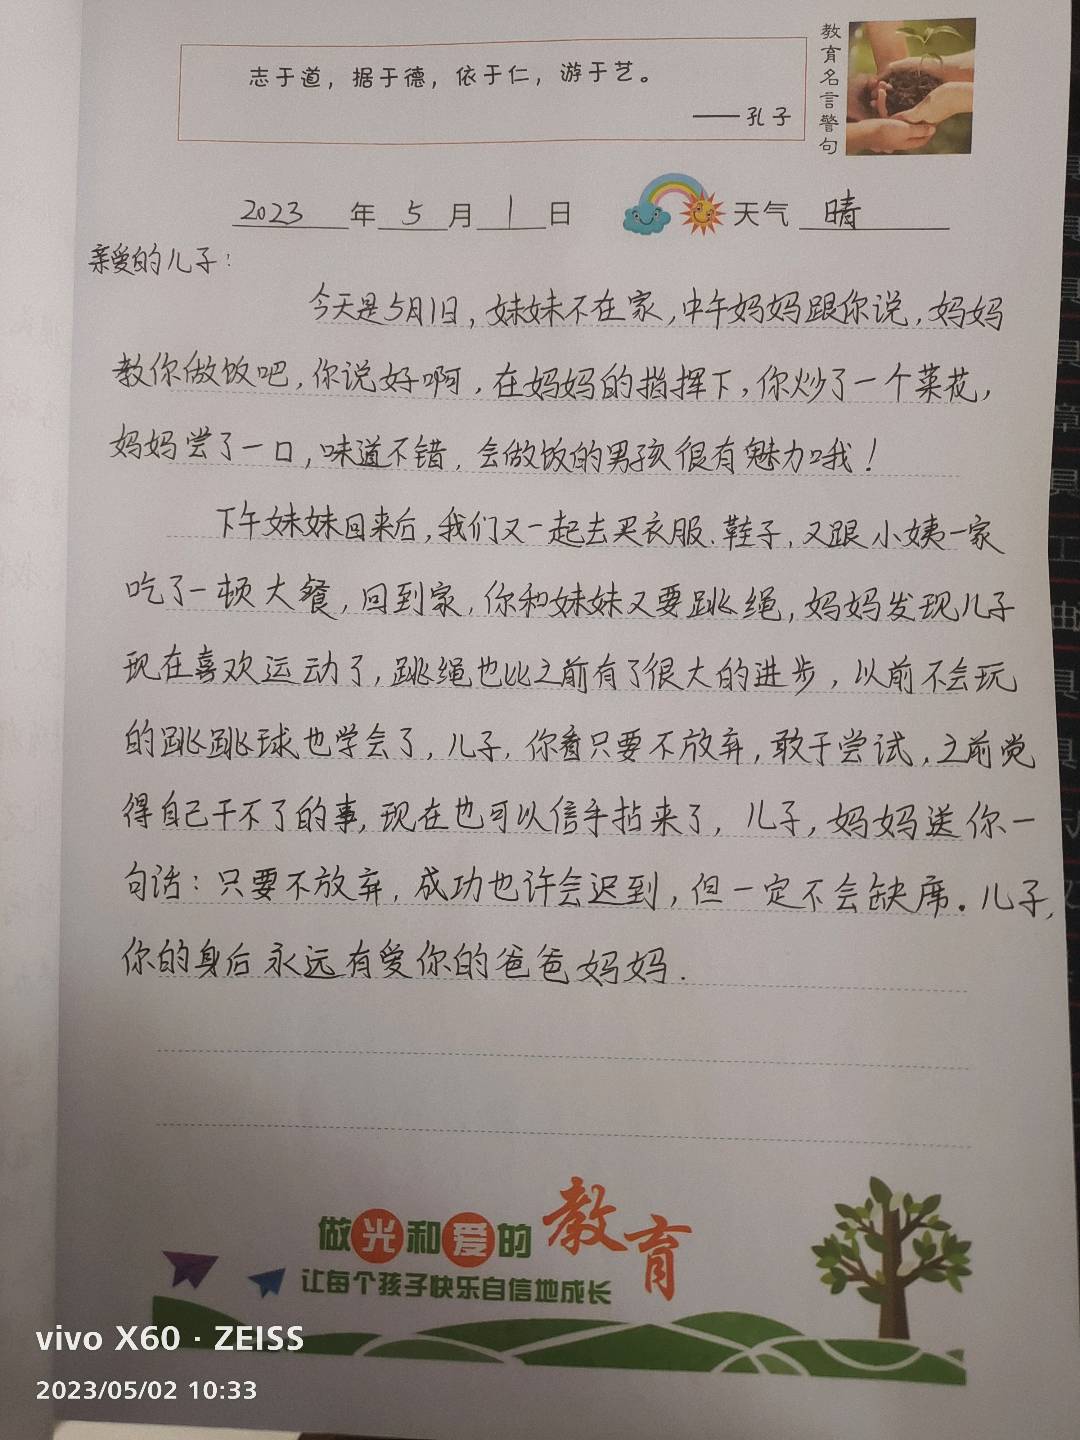 志于道，据于德，依于仁，游于艺。
——孔子
教育名言警句
2023年5月1日 天气 晴
亲爱的儿子：
今天是5月1日，妹妹不在家，中午妈妈跟你说，妈妈
教你做饭吧，你说好啊，在妈妈的指挥下，你炒了一个菜花，
妈妈尝了一口，味道不错，会做饭的男孩很有魅力哦！
下午妹妹回来后，我们又一起去买衣服、鞋子，又跟小姨一家
吃了一顿大餐，回到家，你和妹妹又要跳绳，妈妈发现儿子
现在喜欢运动了，跳绳也比之前有了很大的进步，以前不会玩
的跳跳球也学会了，儿子，你看只要不放弃，敢于尝试，之前觉
得自己干不了的事，现在也可以信手拈来了，儿子，妈妈送你一
句话：只要不放弃，成功也许会迟到，但一定不会缺席。儿子，
你的身后永远有爱你的爸爸妈妈.
做光和爱的教育
让每个孩子快乐自信地成长
vivo X60 · ZEISS
2023/05/02 10:33